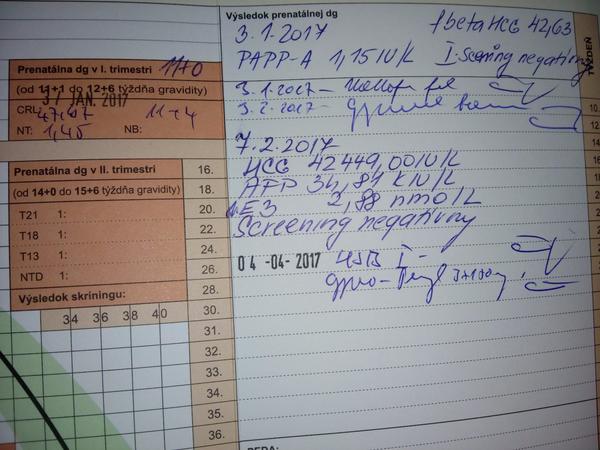 Výsledok prenatálnej dg
3.1.2017 fbetaHCG 42,63
PAPP-A 1,15 IU/L I. Screening negatívny
3.1.2017 -
3.2.2017 -
7.2.2017
HCG 42449,00 IU/L
AFP 34,84 kIU/L
uE3 2,88 nmol/L
Screening negatívny
04 -04- 2017 USG I -
Prenatálna dg v I. trimestri 11+0
(od 11+1 do 12+6 týždňa gravidity)
3/ JAN. 2017
CRL: 47,67 11+4
NT: 1,45 NB:
Prenatálna dg v II. trimestri
(od 14+0 do 15+6 týždňa gravidity)
T21 1:
T18 1:
T13 1:
NTD 1:
Výsledok skríningu:
34 36 38 40
16.
18.
20.
22.
24.
26.
28.
30.
31.
32.
33.
34.
35.
36.
TÝŽDEŇ
10.
12.